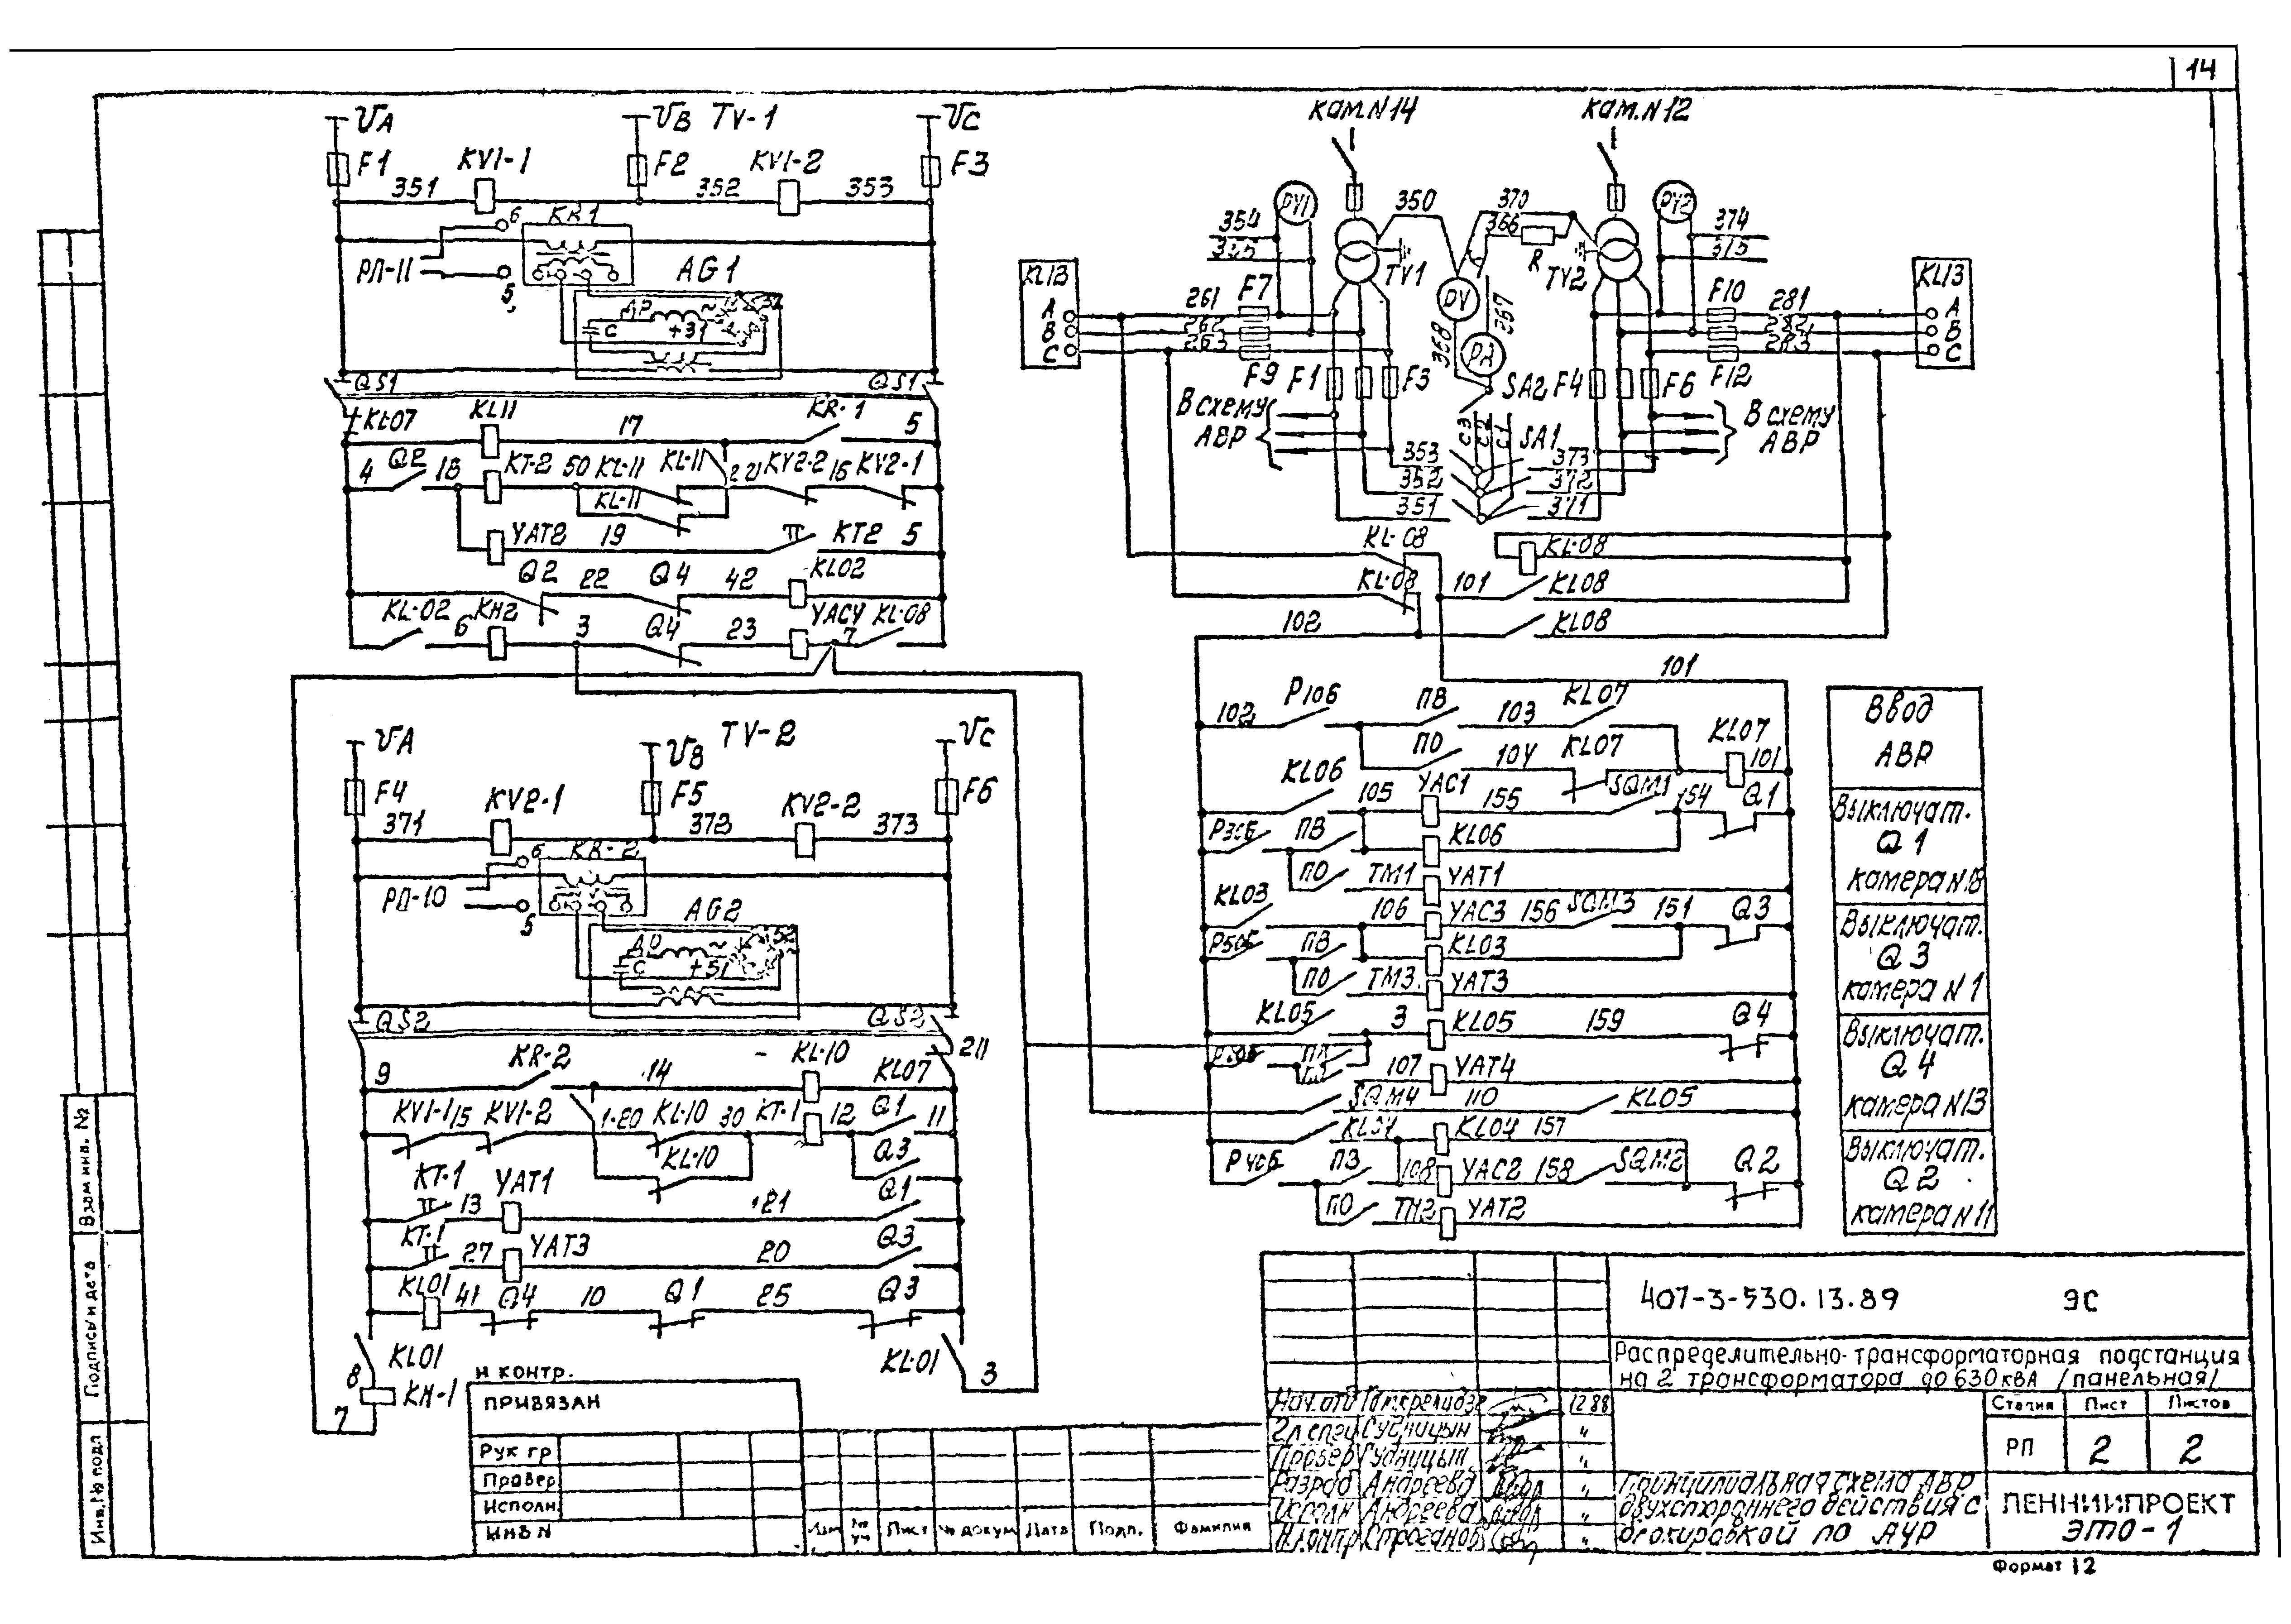 14
UA
UB TV-1
UC
F1
KV1-1
F2
KV1-2
F3
351
352
353
KR1
6
РП-11
5
AG1
C
QS1
QS1
KL07
KL11
17
KR-1
5
4
Q2
18
KT-2
50
KL-11
KL-11
KV2-2
16
KV2-1
KL-11
YAT2
19
KT2
5
Q2
22
Q4
42
KL02
KL-02
6
KH2
3
Q4
23
YAC4
7
KL-08
UA
UB
TV-2
UC
F4
KV2-1
F5
KV2-2
F6
371
372
373
KR-2
6
РП-10
5
AG2
C
QS2
QS2
211
9
KR-2
14
KL-10
KL07
KV1-1
15
KV1-2
1-20
KL-10
30
KT-1
12
Q1
11
KL-10
Q3
KT-1
13
YAT1
21
Q1
KT-1
27
YAT3
20
Q3
KL01
41
Q4
10
Q1
25
Q3
KL01
8
KH-1
7
KL01
3
кам.N14
кам.N12
PV1
350
370
366
PV2
354
355
374
375
R
TV1
TV2
KL13
A
B
C
261
262
263
F7
F9
F1
F3
PV
368
367
SA2
F4
F6
F10
F12
281
282
283
KL13
A
B
C
В схему
АВР
C3
C2
C1
SA1
353
352
351
373
372
371
В схему
АВР
KL-08
KL-08
KL-08
101
KL08
102
KL08
101
102
Р106
ПВ
103
KL07
ПО
104
KL07
KL07
101
KL06
105
YAC1
155
SQM1
154
Q1
Р306
ПВ
KL06
ПО
TM1
YAT1
KL03
106
YAC3
156
SQM3
151
Q3
Р506
ПВ
KL03
ПО
TM3
YAT3
KL05
3
KL05
159
Q4
107
YAT4
SQM4
110
KL05
KL04
KL04
157
Р406
ПЗ
108
YAC2
158
SQM2
Q2
ПО
TM2
YAT2
Ввод
АВР
Выключат.
Q1
камера N18
Выключат.
Q3
камера N1
Выключат.
Q4
камера N13
Выключат.
Q2
камера N11
407-3-530.13.89 ЭС
Распределительно-трансформаторная подстанция
на 2 трансформатора до 630 кВА /панельная/
Стадия Лист Листов
РП 2 2
Принципиальная схема АВР
двухстороннего действия с
блокировкой по АЧР
ЛЕННИИПРОЕКТ
ЭТО-1
Формат 12
Нач.отд
12.88
Гл.спец Судницын "
Провер Судницын "
Разраб Андреева "
Исполн Андреева "
Н.контр Строганов "
Н контр.
ПРИВЯЗАН
Рук гр
Провер
Исполн
ИНВ N
Изм
№ уч
Лист
№ докум
Дата
Подп.
Фамилия
Взам инв. №
Подпись и дата
Инв.№ подл